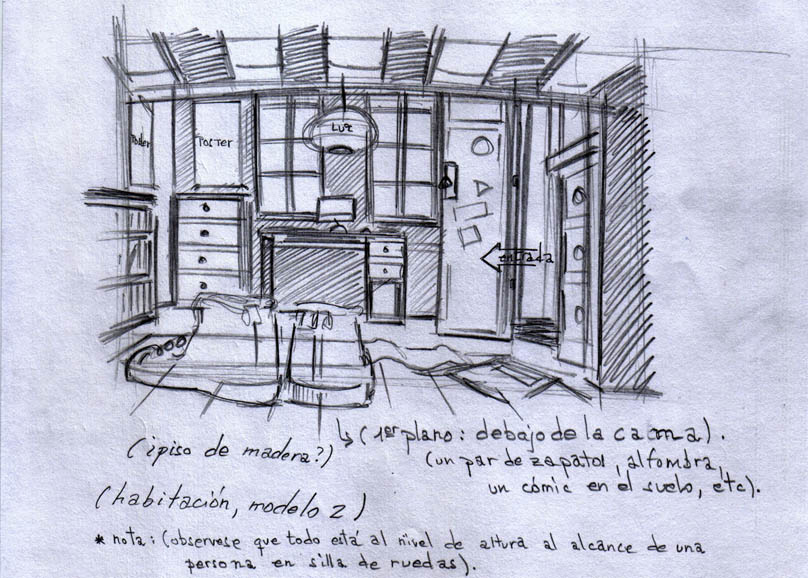 LUZ
Poster
POSTER
entrada
↳ (1er plano: debajo de la cama).
(¿piso de madera?)
(un par de zapatos, alfombra,
un cómic en el suelo, etc).
(habitación, modelo 2)
* nota: (observese que todo está al nivel de altura al alcance de una
persona en silla de ruedas).